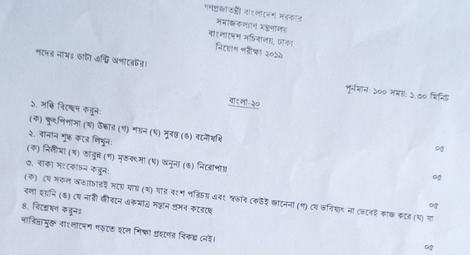 গণপ্রজাতন্ত্রী বাংলাদেশ সরকার
সমাজকল্যাণ মন্ত্রণালয়
বাংলাদেশ সচিবালয়, ঢাকা
নিয়োগ পরীক্ষা ২০১৯
পদের নামঃ ডাটা এন্ট্রি অপারেটর।
পূর্নমান: ১০০ সময়: ১.৩০ মিনিট
বাংলা-২০
১. সন্ধি বিচ্ছেদ করুন:
(ক) ক্ষুৎপিপাসা (খ) উদ্ধার (গ) শয়ন (ঘ) সুবন্ত (ঙ) বনৌষধি
০৫
২. বানান শুদ্ধ করে লিখুন:
(ক) নিলীমা (খ) তারুন্ন (গ) মৃতবৎসা (ঘ) অনুনা (ঙ) নিরোপায়
০৫
৩. বাক্য সংকোচন করুন:
(ক) যে সকল অত্যাচারই সয়ে যায় (খ) যার বংশ পরিচয় এবং স্বভাব কেউই জানেনা (গ) যে ভবিষ্যৎ না ভেবেই কাজ করে (ঘ) যা
বলা হয়নি (ঙ) যে নারী জীবনে একমাত্র সন্তান প্রসব করেছে
০৫
৪. বিশ্লেষণ করুনঃ
দারিদ্রমুক্ত বাংলাদেশ গড়তে হলে শিক্ষা গ্রহণের বিকল্প নেই।
০৫